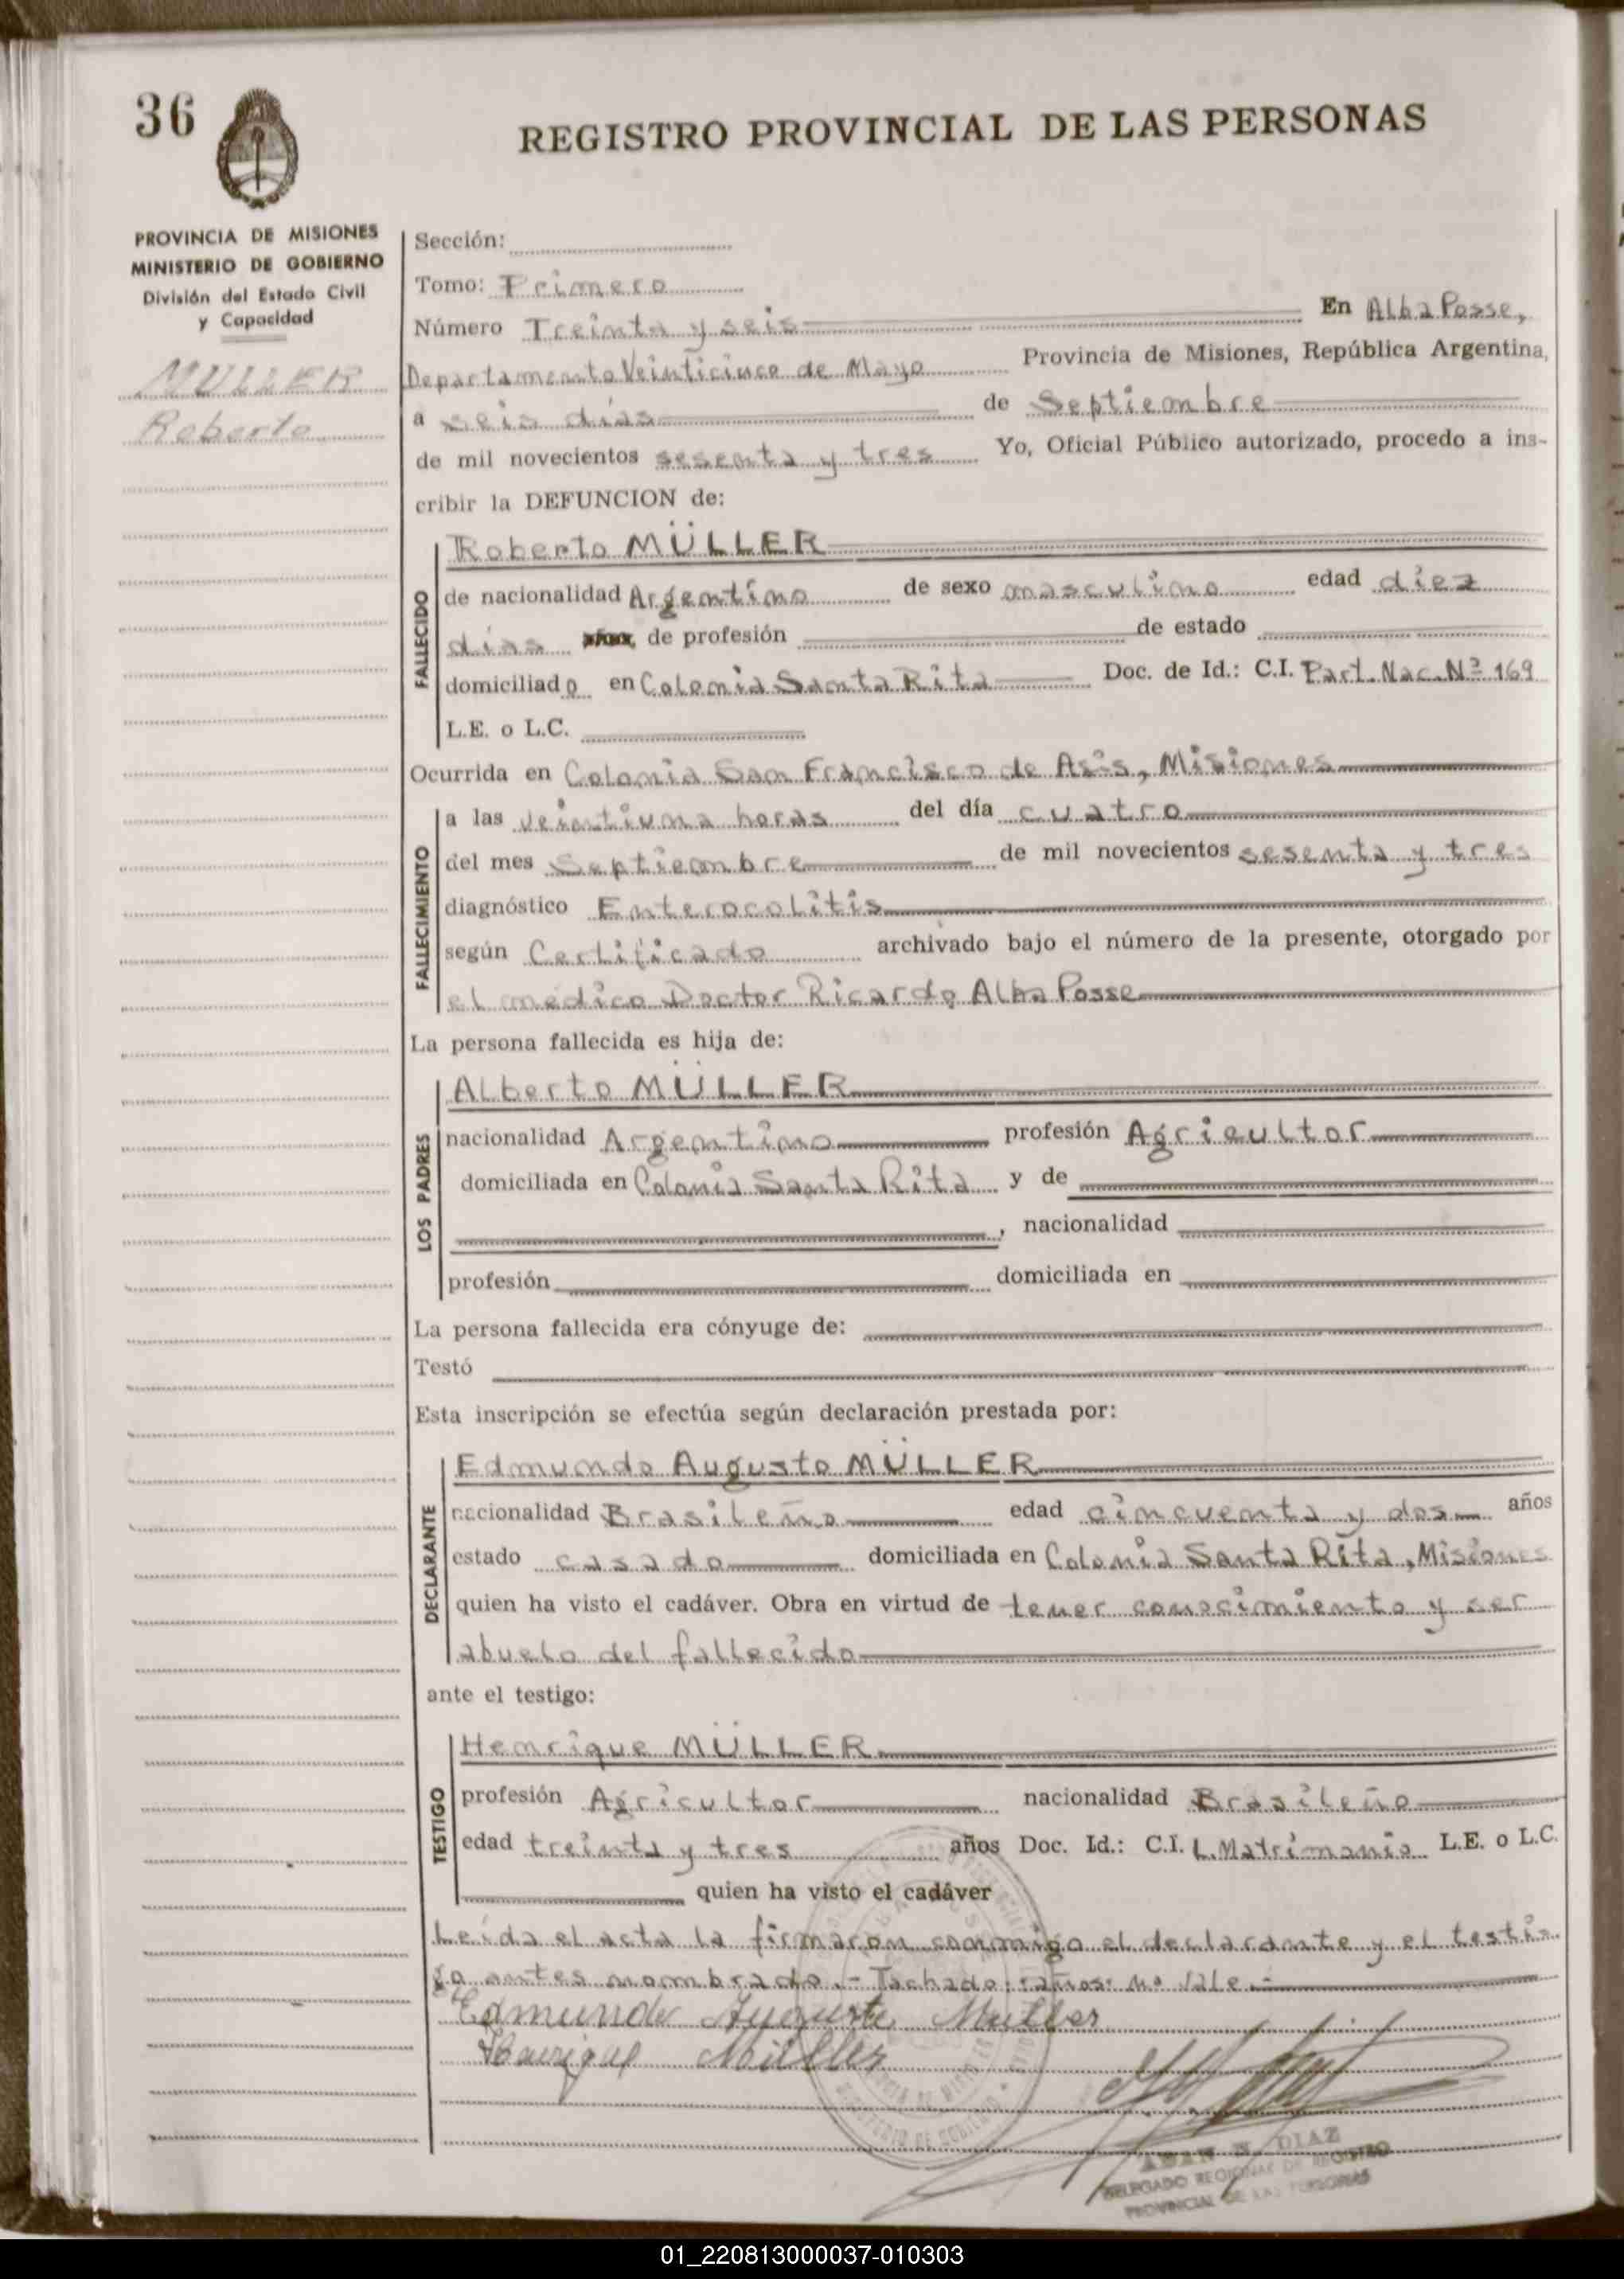 36
REGISTRO PROVINCIAL DE LAS PERSONAS
PROVINCIA DE MISIONES
MINISTERIO DE GOBIERNO
División del Estado Civil
y Capacidad
MULLER
Roberto
Sección:
Tomo: Primero
Número Treinta y seis En Alba Posse,
Departamento Veinticinco de Mayo Provincia de Misiones, República Argentina,
a seis días de Septiembre
de mil novecientos sesenta y tres Yo, Oficial Público autorizado, procedo a ins-
cribir la DEFUNCION de:
FALLECIDO
Roberto MÜLLER
de nacionalidad Argentino de sexo masculino edad diez
días años, de profesión de estado
domiciliado en Colonia Santa Rita Doc. de Id.: C.I. Part. Nac. Nº 169
L.E. o L.C.
Ocurrida en Colonia San Francisco de Asís, Misiones
FALLECIMIENTO
a las veintiuna horas del día cuatro
del mes Septiembre de mil novecientos sesenta y tres
diagnóstico Enterocolitis
según Certificado archivado bajo el número de la presente, otorgado por
el médico Doctor Ricardo Alba Posse
La persona fallecida es hija de:
LOS PADRES
Alberto MÜLLER
nacionalidad Argentino profesión Agricultor
domiciliada en Colonia Santa Rita y de
, nacionalidad
profesión domiciliada en
La persona fallecida era cónyuge de:
Testó
Esta inscripción se efectúa según declaración prestada por:
DECLARANTE
Edmundo Augusto MÜLLER
nacionalidad Brasileño edad cincuenta y dos años
estado casado domiciliada en Colonia Santa Rita, Misiones
quien ha visto el cadáver. Obra en virtud de tener conocimiento y ser
abuelo del fallecido
ante el testigo:
TESTIGO
Henrique MÜLLER
profesión Agricultor nacionalidad Brasileño
edad treinta y tres años Doc. Id.: C.I. L. Matrimonio L.E. o L.C.
quien ha visto el cadáver
Leída el acta la firmaron conmigo el declarante y el testi-
go antes nombrado.- Tachado: :años: no vale.-
Edmundo Augusto Muller
Henrique Müller
DIAZ
DELEGADO REGIONAL DE REGISTRO
PROVINCIAL DE LAS PERSONAS
01_220813000037-010303